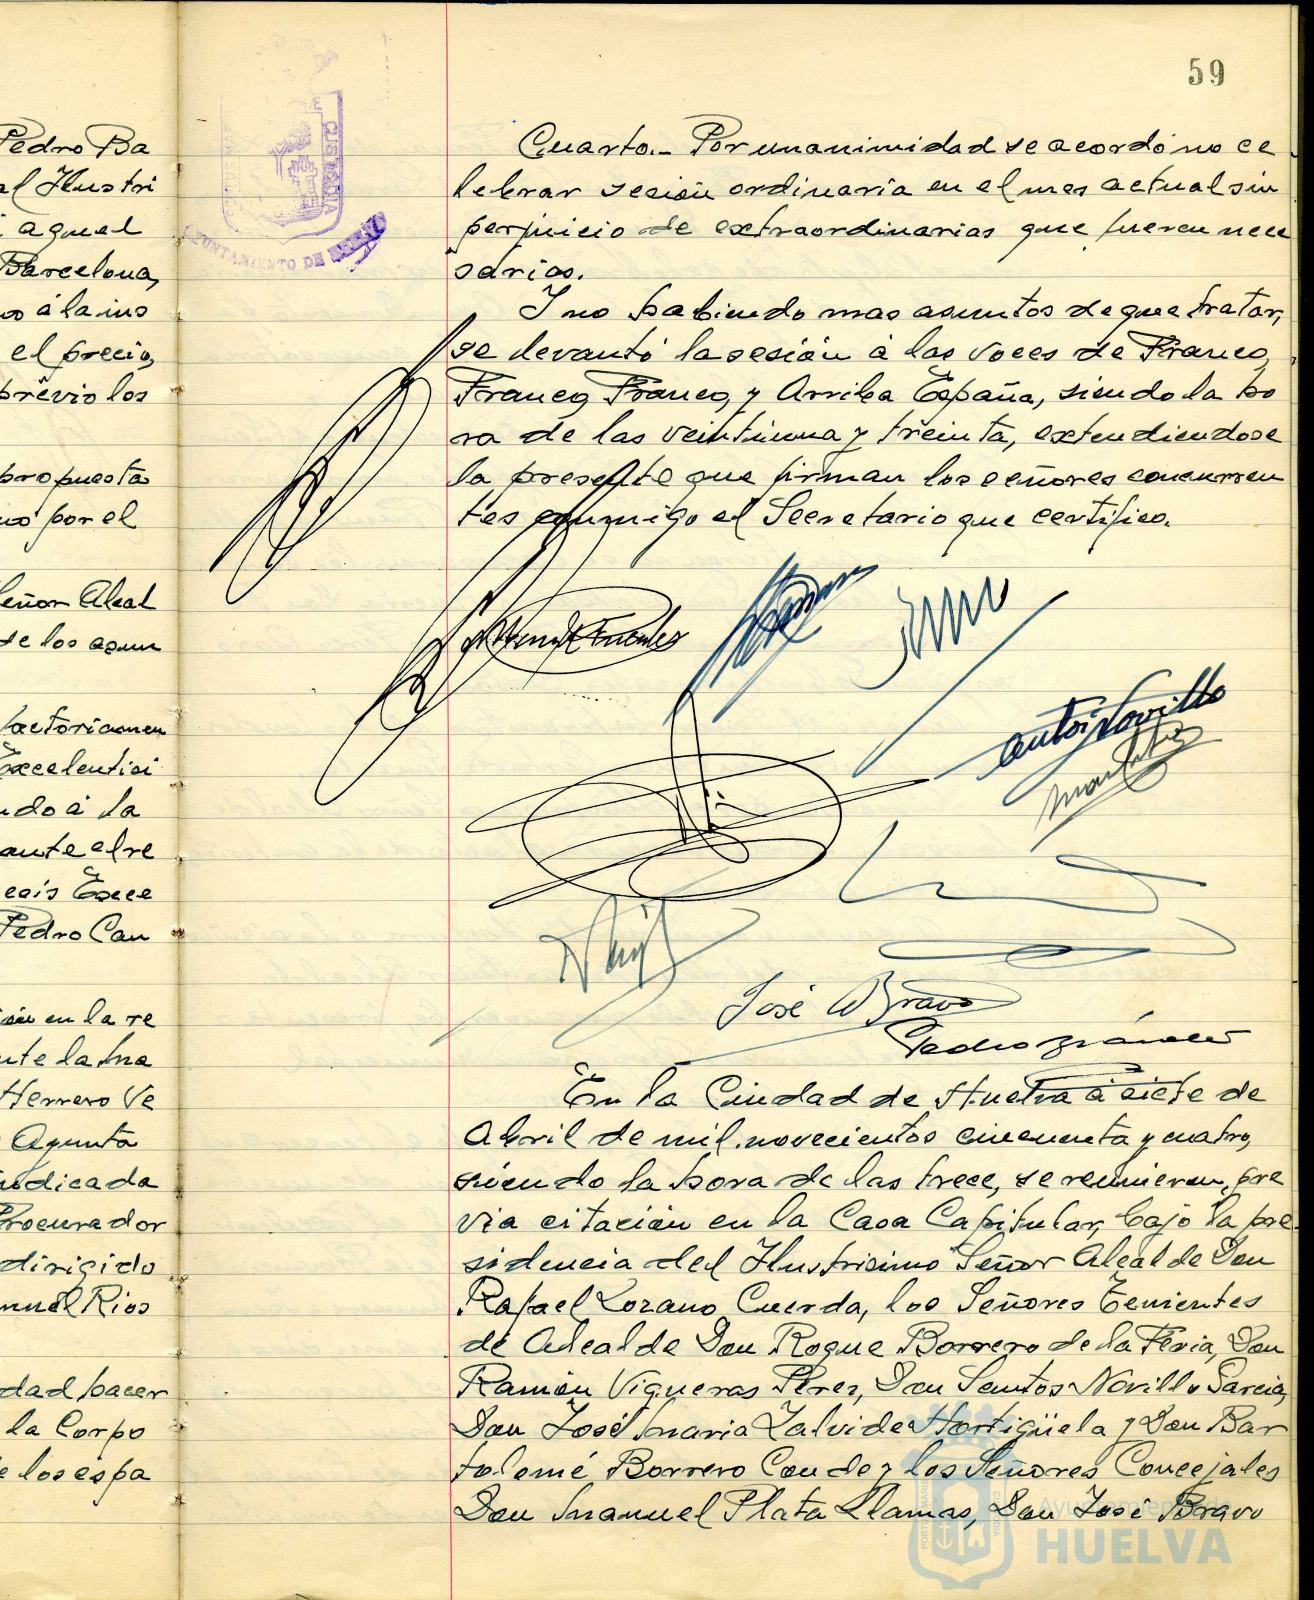 59
Pedro Ba
al Ilustri
aquel
Barcelona,
á la ins
el precio,
prévio los
propuesta
por el
eñor Alcal
de los asun
factoriamen
Excelentisi
ndo á la
ante el re
Exce
Pedro Can
en la re
nte la Ma
Herrero Ve
Agunta
ndicada
Procurador
dirigido
nuel Rios
dad hacer
la Corpo
e los espa
Cuarto.- Por unanimidad se acordó no ce
lebrar sesión ordinaria en el mes actual sin
perjuicio de extraordinarias que fueren nece
sarias.
Y no habiendo mas asuntos de que tratar,
se levantó la sesión á las voces de Franco,
Franco, Franco, y Arriba España, siendo la ho
ra de las veintiuna y treinta, extendiendose
la presente que firman los señores concurren
tes conmigo el Secretario que certifico.
Antonio Novillo
José Bravo
Pedro
En la Ciudad de Huelva á siete de
Abril de mil novecientos cincuenta y cuatro,
siendo la hora de las trece, se reunieron, pre
via citación en la Casa Capitular, bajo la pre
sidencia del Ilustrisimo Señor Alcalde Don
Rafael Lozano Cuerda, los Señores Tenientes
de Alcalde Don Roque Borrero de la Feria, Don
Ramón Vigueras Perez, Don Santos Novillo Garcia,
Don José Maria Zalvide Hortigüela y Don Bar
tolomé Borrero Conde y los Señores Concejales
Don Manuel Plata Llamas, Don José Bravo
AYUNTAMIENTO DE HUELVA
Ayuntamiento de
HUELVA